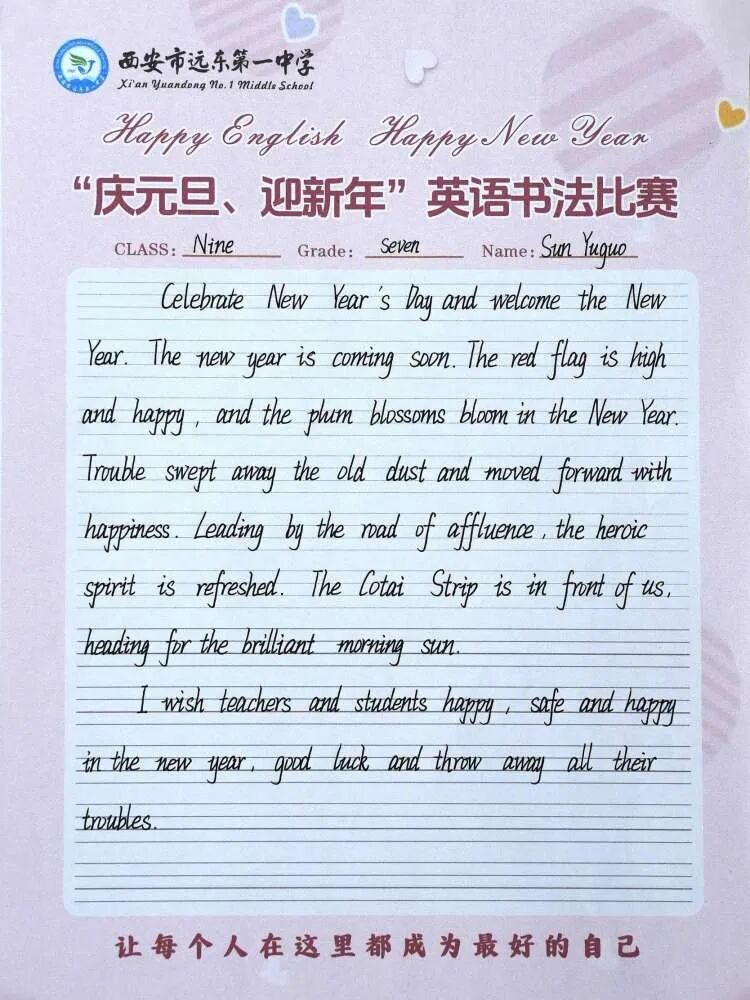 西安市远东第一中学
Xi'an Yuandong No.1 Middle School
Happy English Happy New Year
“庆元旦、迎新年”英语书法比赛
CLASS: Nine Grade: Seven Name: Sun Yuguo
Celebrate New Year's Day and welcome the New
Year. The new year is coming soon. The red flag is high
and happy, and the plum blossoms bloom in the New Year.
Trouble swept away the old dust and moved forward with
happiness. Leading by the road of affluence, the heroic
spirit is refreshed. The Cotai Strip is in front of us,
heading for the brilliant morning sun.
I wish teachers and students happy, safe and happy
in the new year, good luck and throw away all their
troubles.
让每个人在这里都成为最好的自己